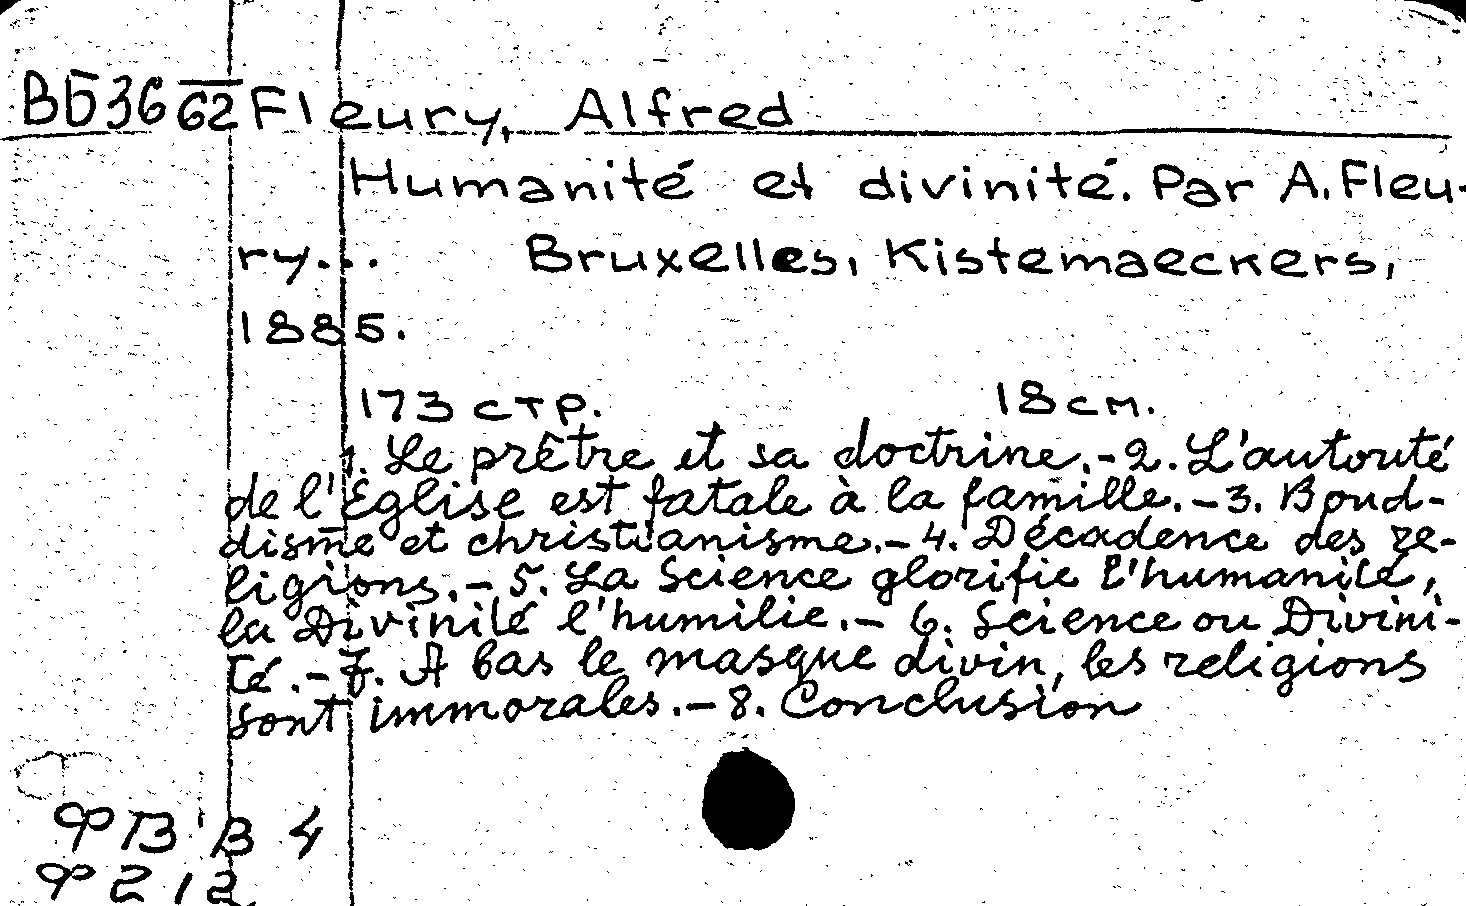 ВБ 36 62 Fleury, Alfred
Humanité et divinité. Par A. Fleu-
ry... Bruxelles, Kistemaeckers,
1885.
173 стр. 18 см.
1. Le prêtre et sa doctrine.-2. L'autorité
de l'Église est fatale à la famille.-3. Boud-
disme et christianisme.-4. Décadence des re-
ligions.-5. La Science glorifie l'humanité,
la Divinité l'humilie.-6. Science ou Divini-
té.-7. A bas le masque divin, les religions
sont immorales.-8. Conclusion